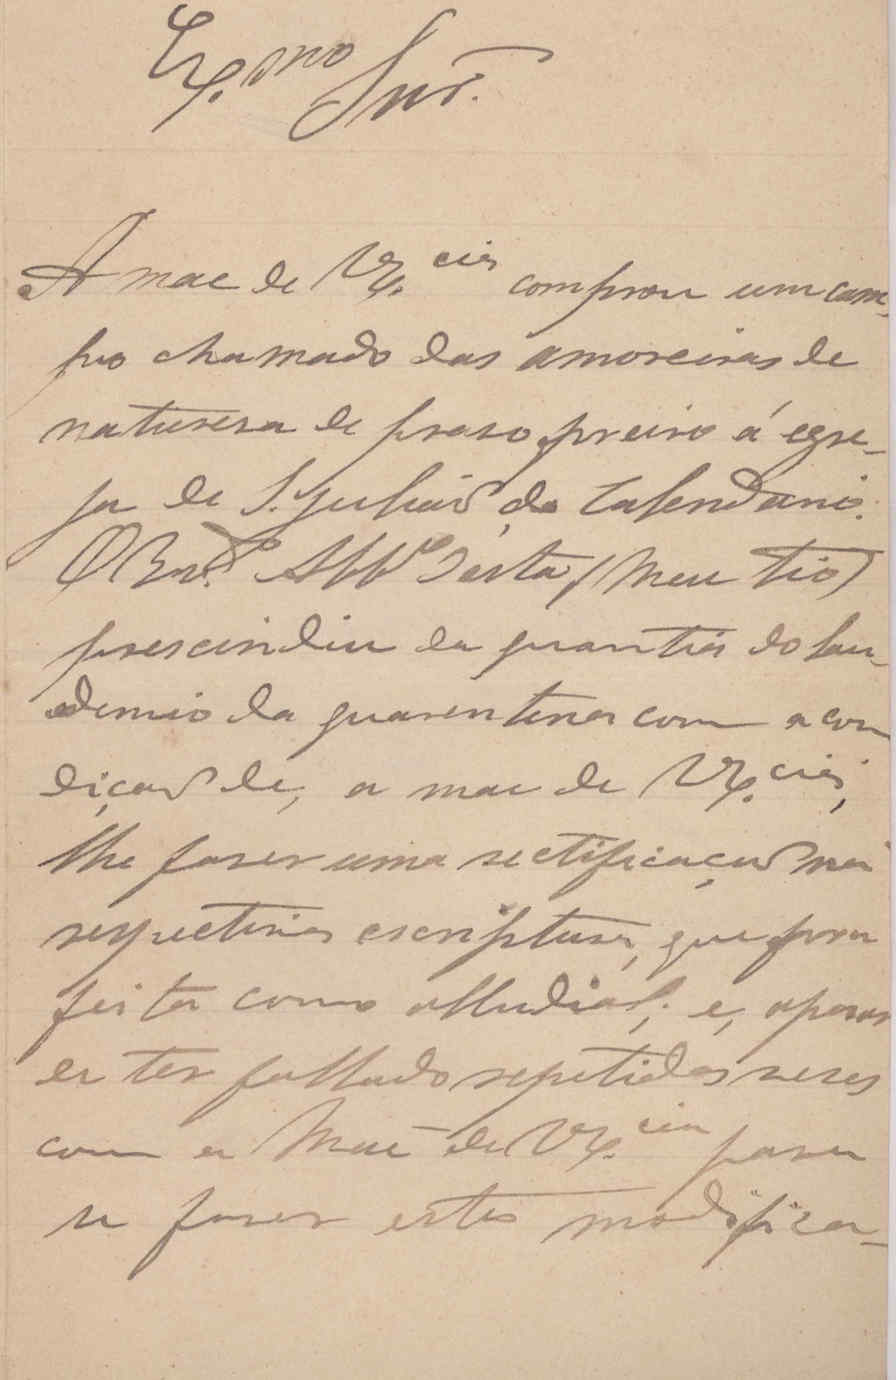 Ex.mo Snr.
A mae de V Ex.cias comprou um cam-
po chamado das amoreiras de
naturesa de praso foreiro á egre-
ja de S. Julião do Calendario.
O Rev.do Abb.e desta (Meu Tio)
prescindiu da quantia do lau-
demio da quarentena com a con
dição de, a mae de V Ex.cias,
lhe faser uma rectificação na
respectiva escriptura, que fora
feita como alludial; e, apesar
de ter fallado repetidas veses
com a Mãe de V Ex.cia para
se faser esta modifica-